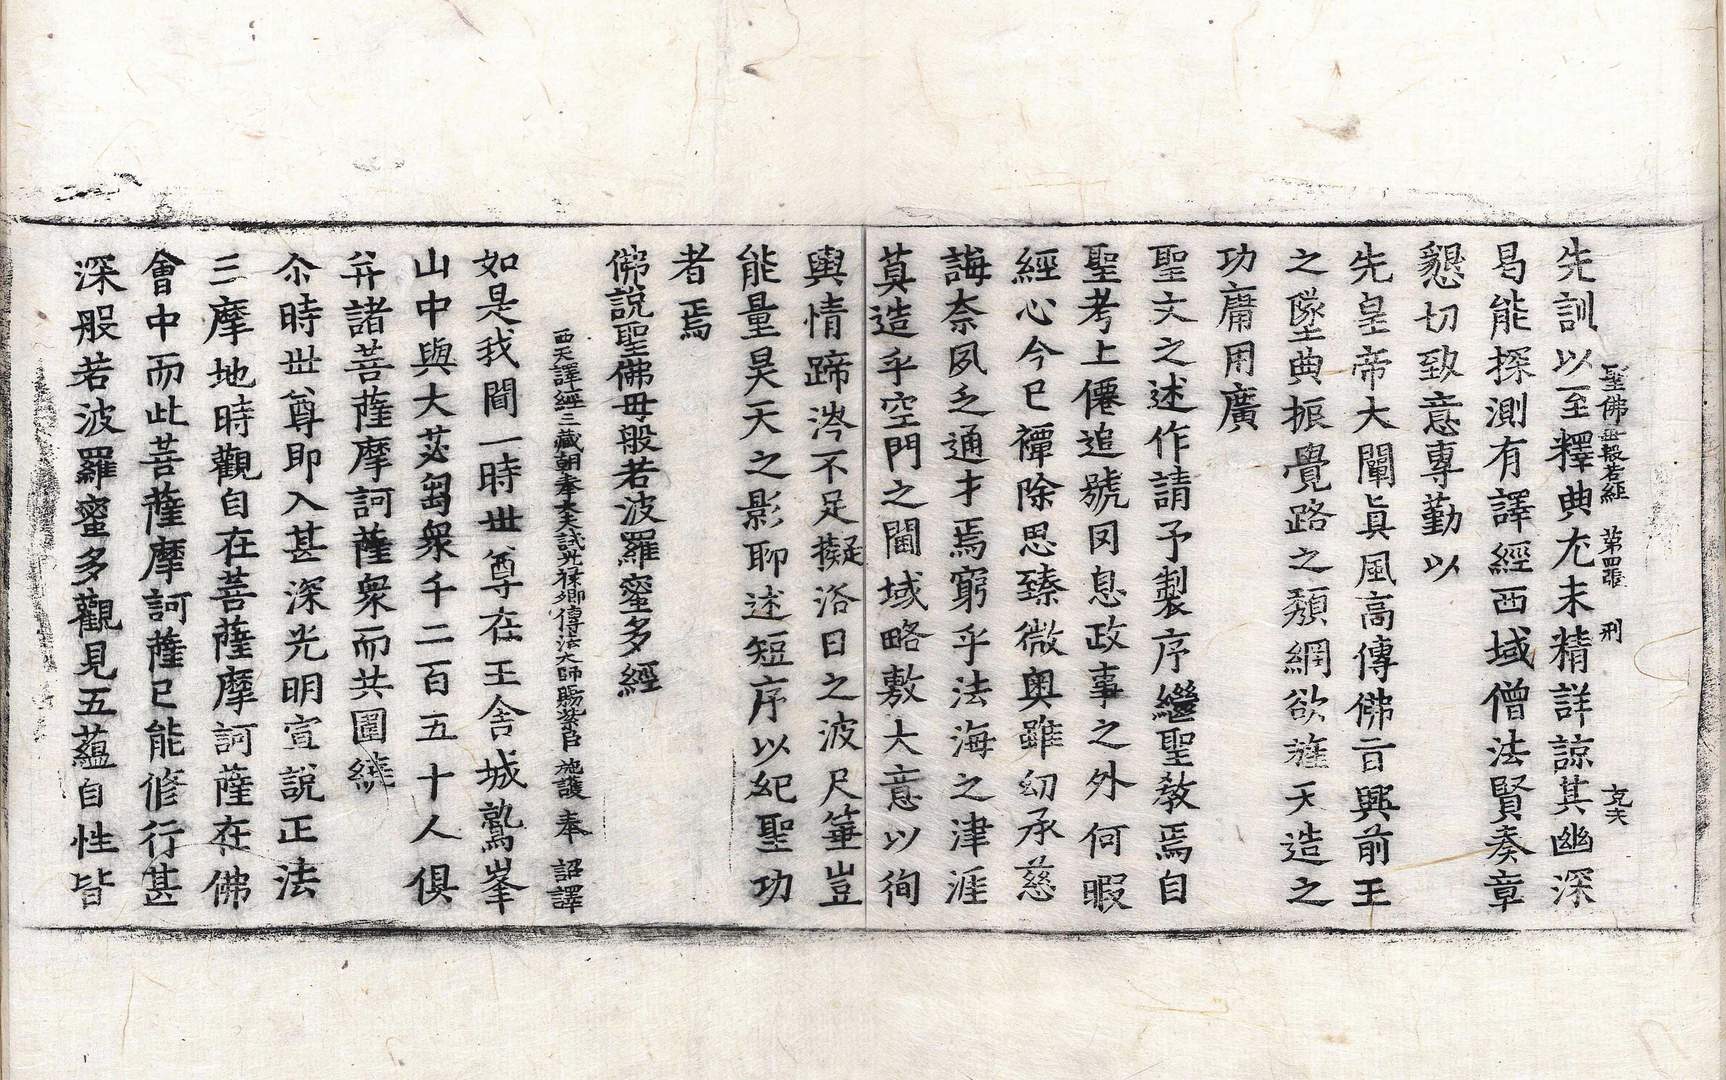 聖佛母般若經 第四張 刑 克夫
先訓以至釋典尤未精詳諒其幽深
曷能探測有譯經西域僧法賢奏章
懇切致意專勤以
先皇帝大闡眞風高傳佛旨興前王
之墜典振覺路之頹綱欲旌天造之
功庸用廣
聖文之述作請予製序繼聖教焉自
聖考上僊追號罔息政事之外何暇
經心今已禫除思臻微奧雖幼承慈
誨奈夙乏通才焉窮乎法海之津涯
莫造乎空門之閫域略敷大意以徇
輿情蹄涔不足擬浴日之波尺箠豈
能量昊天之影聊述短序以紀聖功
者焉
佛說聖佛母般若波羅蜜多經
西天譯經三藏朝奉大夫試光祿卿傳法大師賜紫臣施護奉 詔譯
如是我聞一時世尊在王舍城鷲峯
山中與大苾芻衆千二百五十人俱
并諸菩薩摩訶薩衆而共圍繞
尒時世尊即入甚深光明宣說正法
三摩地時觀自在菩薩摩訶薩在佛
會中而此菩薩摩訶薩已能修行甚
深般若波羅蜜多觀見五蘊自性皆